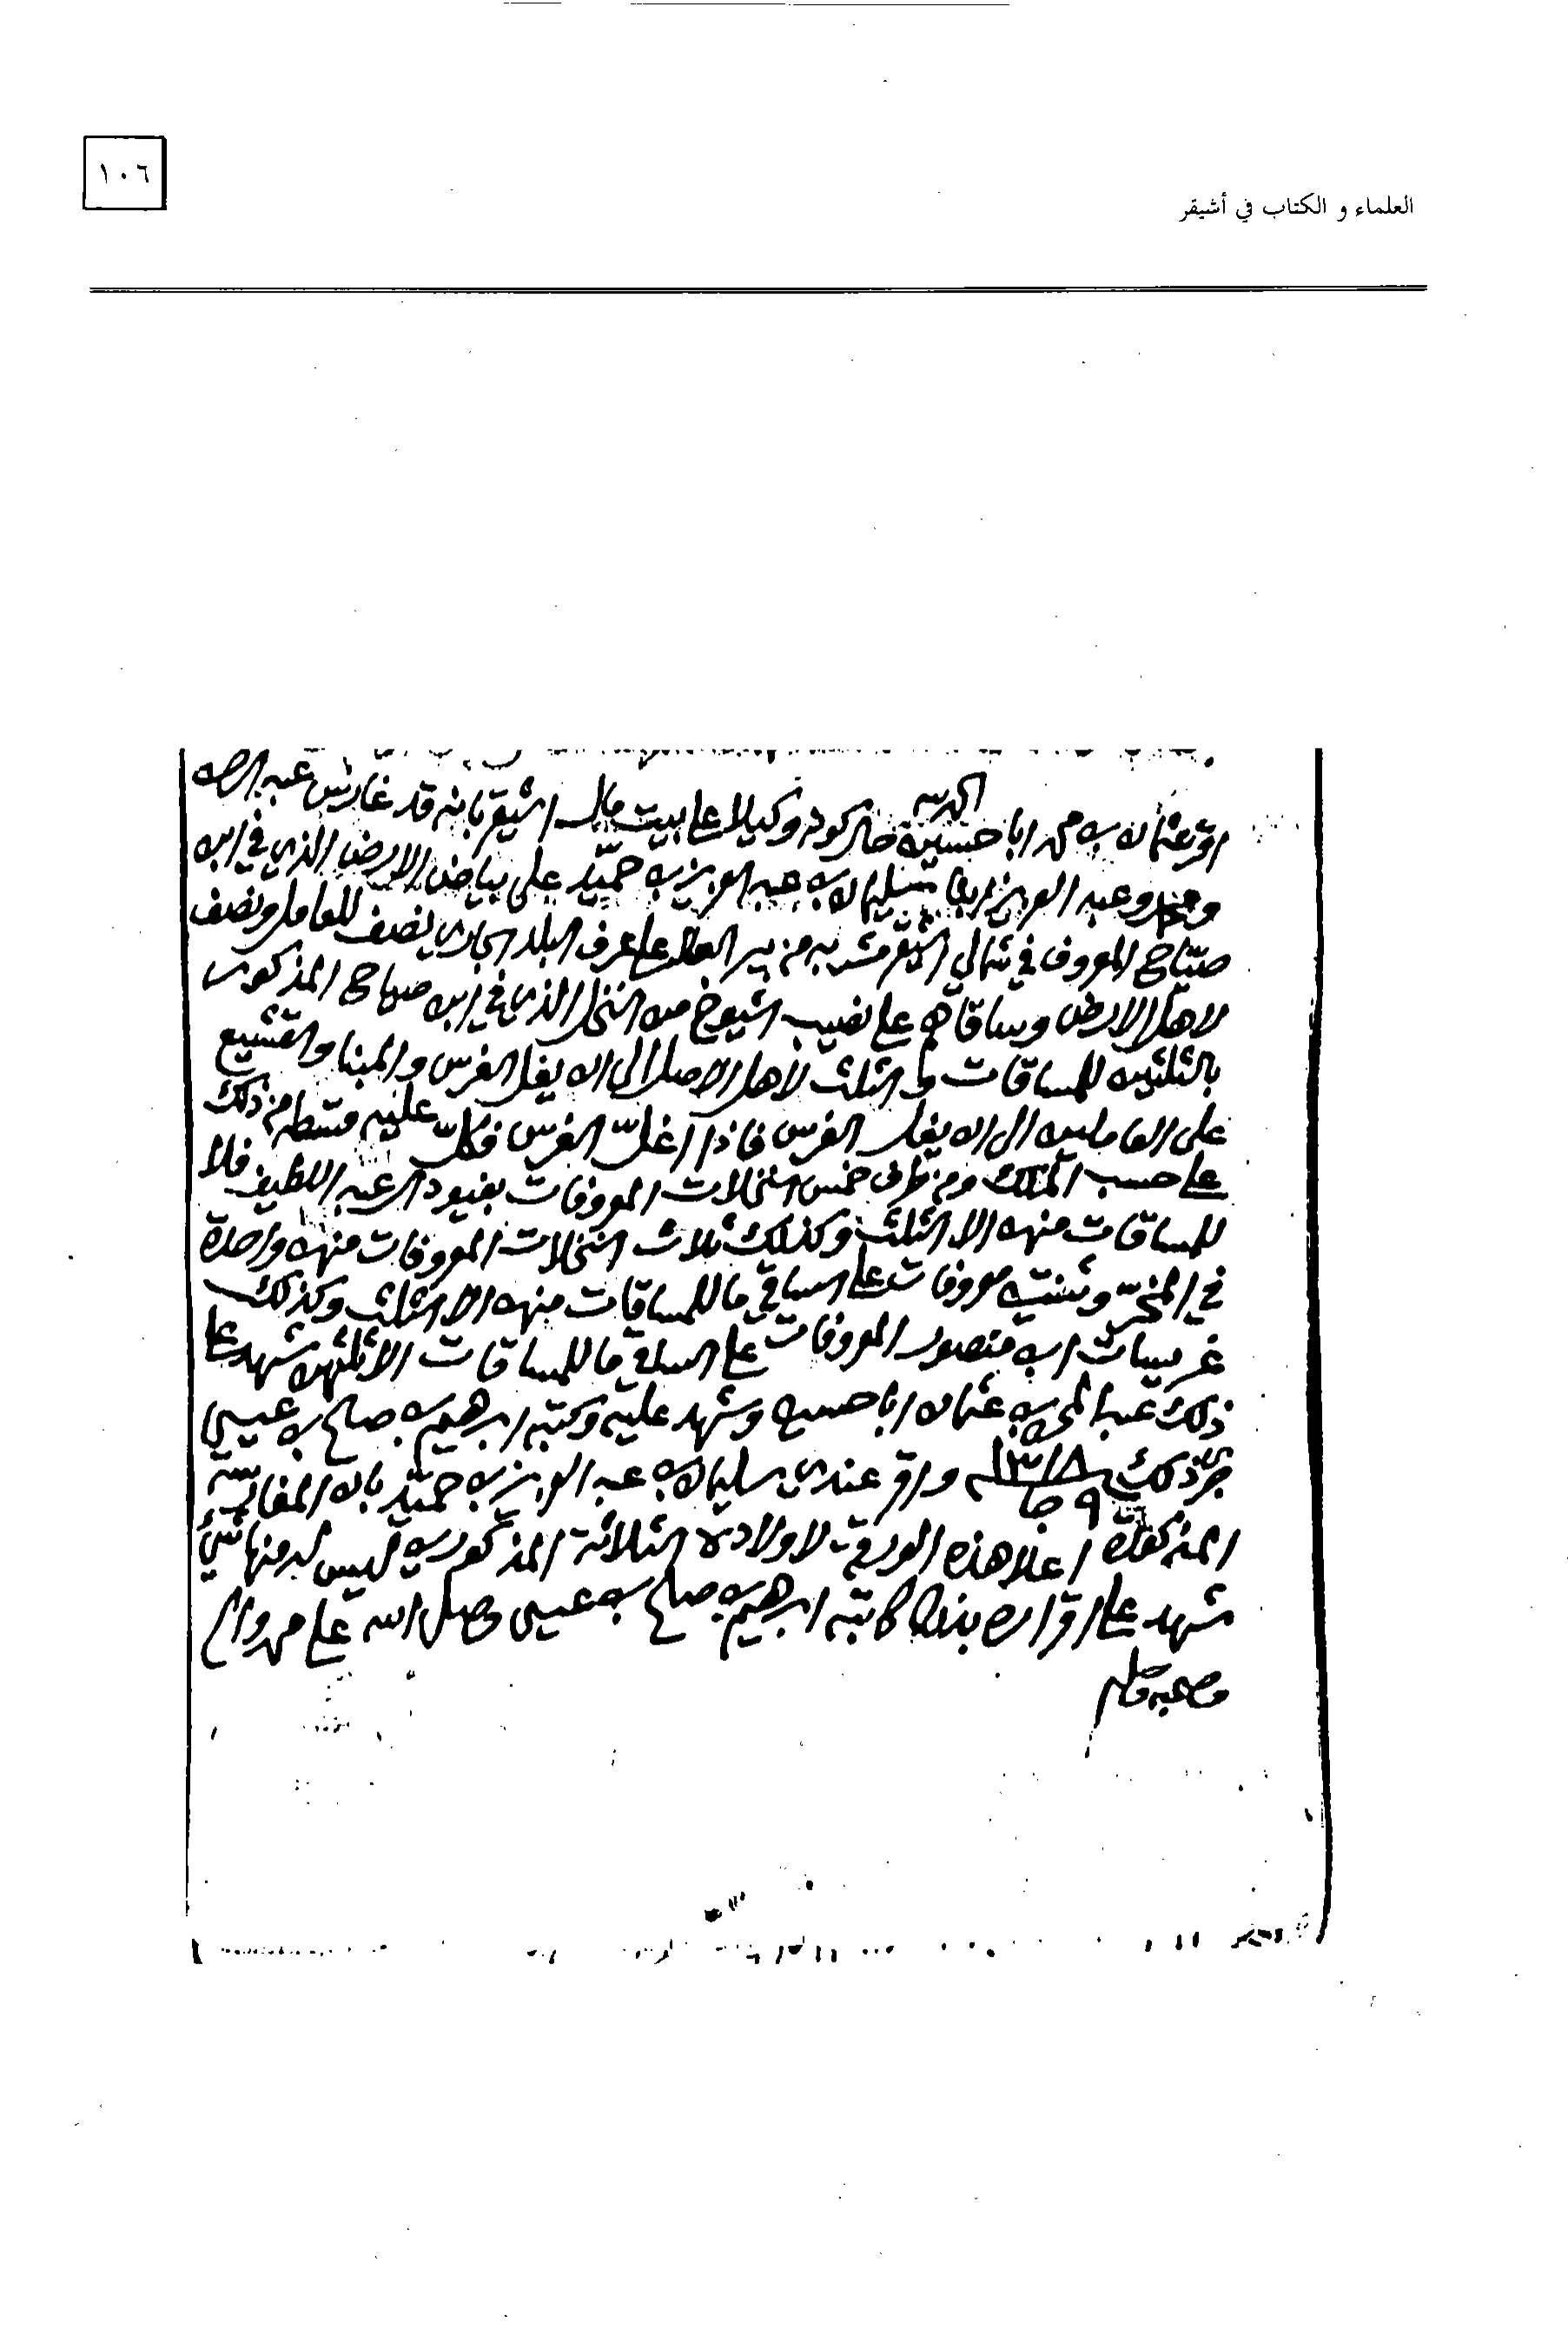 ١٠٦
العلماء و الكتاب في أشيقر
الدين
اقر عثمان بن محمد ابا حسين حال كونه وكيلا على بيت مال اشيقر بانه قد غارس عبد الرحمن
ومحمد وعبد العزيز سليمان بن عبد العزيز بن حميد على بياض الارض الذي في ابن
صباح المعروف في شمالي اشيقر مشربه من بير على عرف البلد الجاري نصف للعامل ونصف
لاهل الارض وساقاهم على نصيب الشيوخ من النخل الذي في ابن صباح المذكور
بالثلثين للمساقات والثلث لأهل الاصل الى ان يغل الغرس والمبنا والتشييع
على العاملين الى ان يغل الغرس فاذا اغل الغرس فكل عليه قسطه من ذلك
على حسب الملك ومن طرف خمس النخلات المعروفات بقيود ال عبد اللطيف فلا
للمساقات منهن الا الثلث وكذلك ثلاث النخلات المعروفات منهن واحدة
في المنحى وثنتين معروفات على الساقي ما للمساقات منهن الا الثلث وكذلك
غريسات ابن منصور المعروفات على الساقي ما للمساقات الا ثلثهن شهد على
ذلك عبد المحسن بن عثمان ابا حسين وشهد عليه وكتبه ابرهيم بن صالح بن عيسى
جرى ذلك في ٩ جا ١٣١٨ واقر عندي سليمان بن عبد العزيز بن حميد بان المغارسة
المذكورة اعلا هذه الورقة لاولاده الثلاثة المذكورين ليس له منها شيء
شهد على اقراره بذلك كاتبه ابرهيم بن صالح بن عيسى وصلى الله على محمد واله
وصحبه وسلم